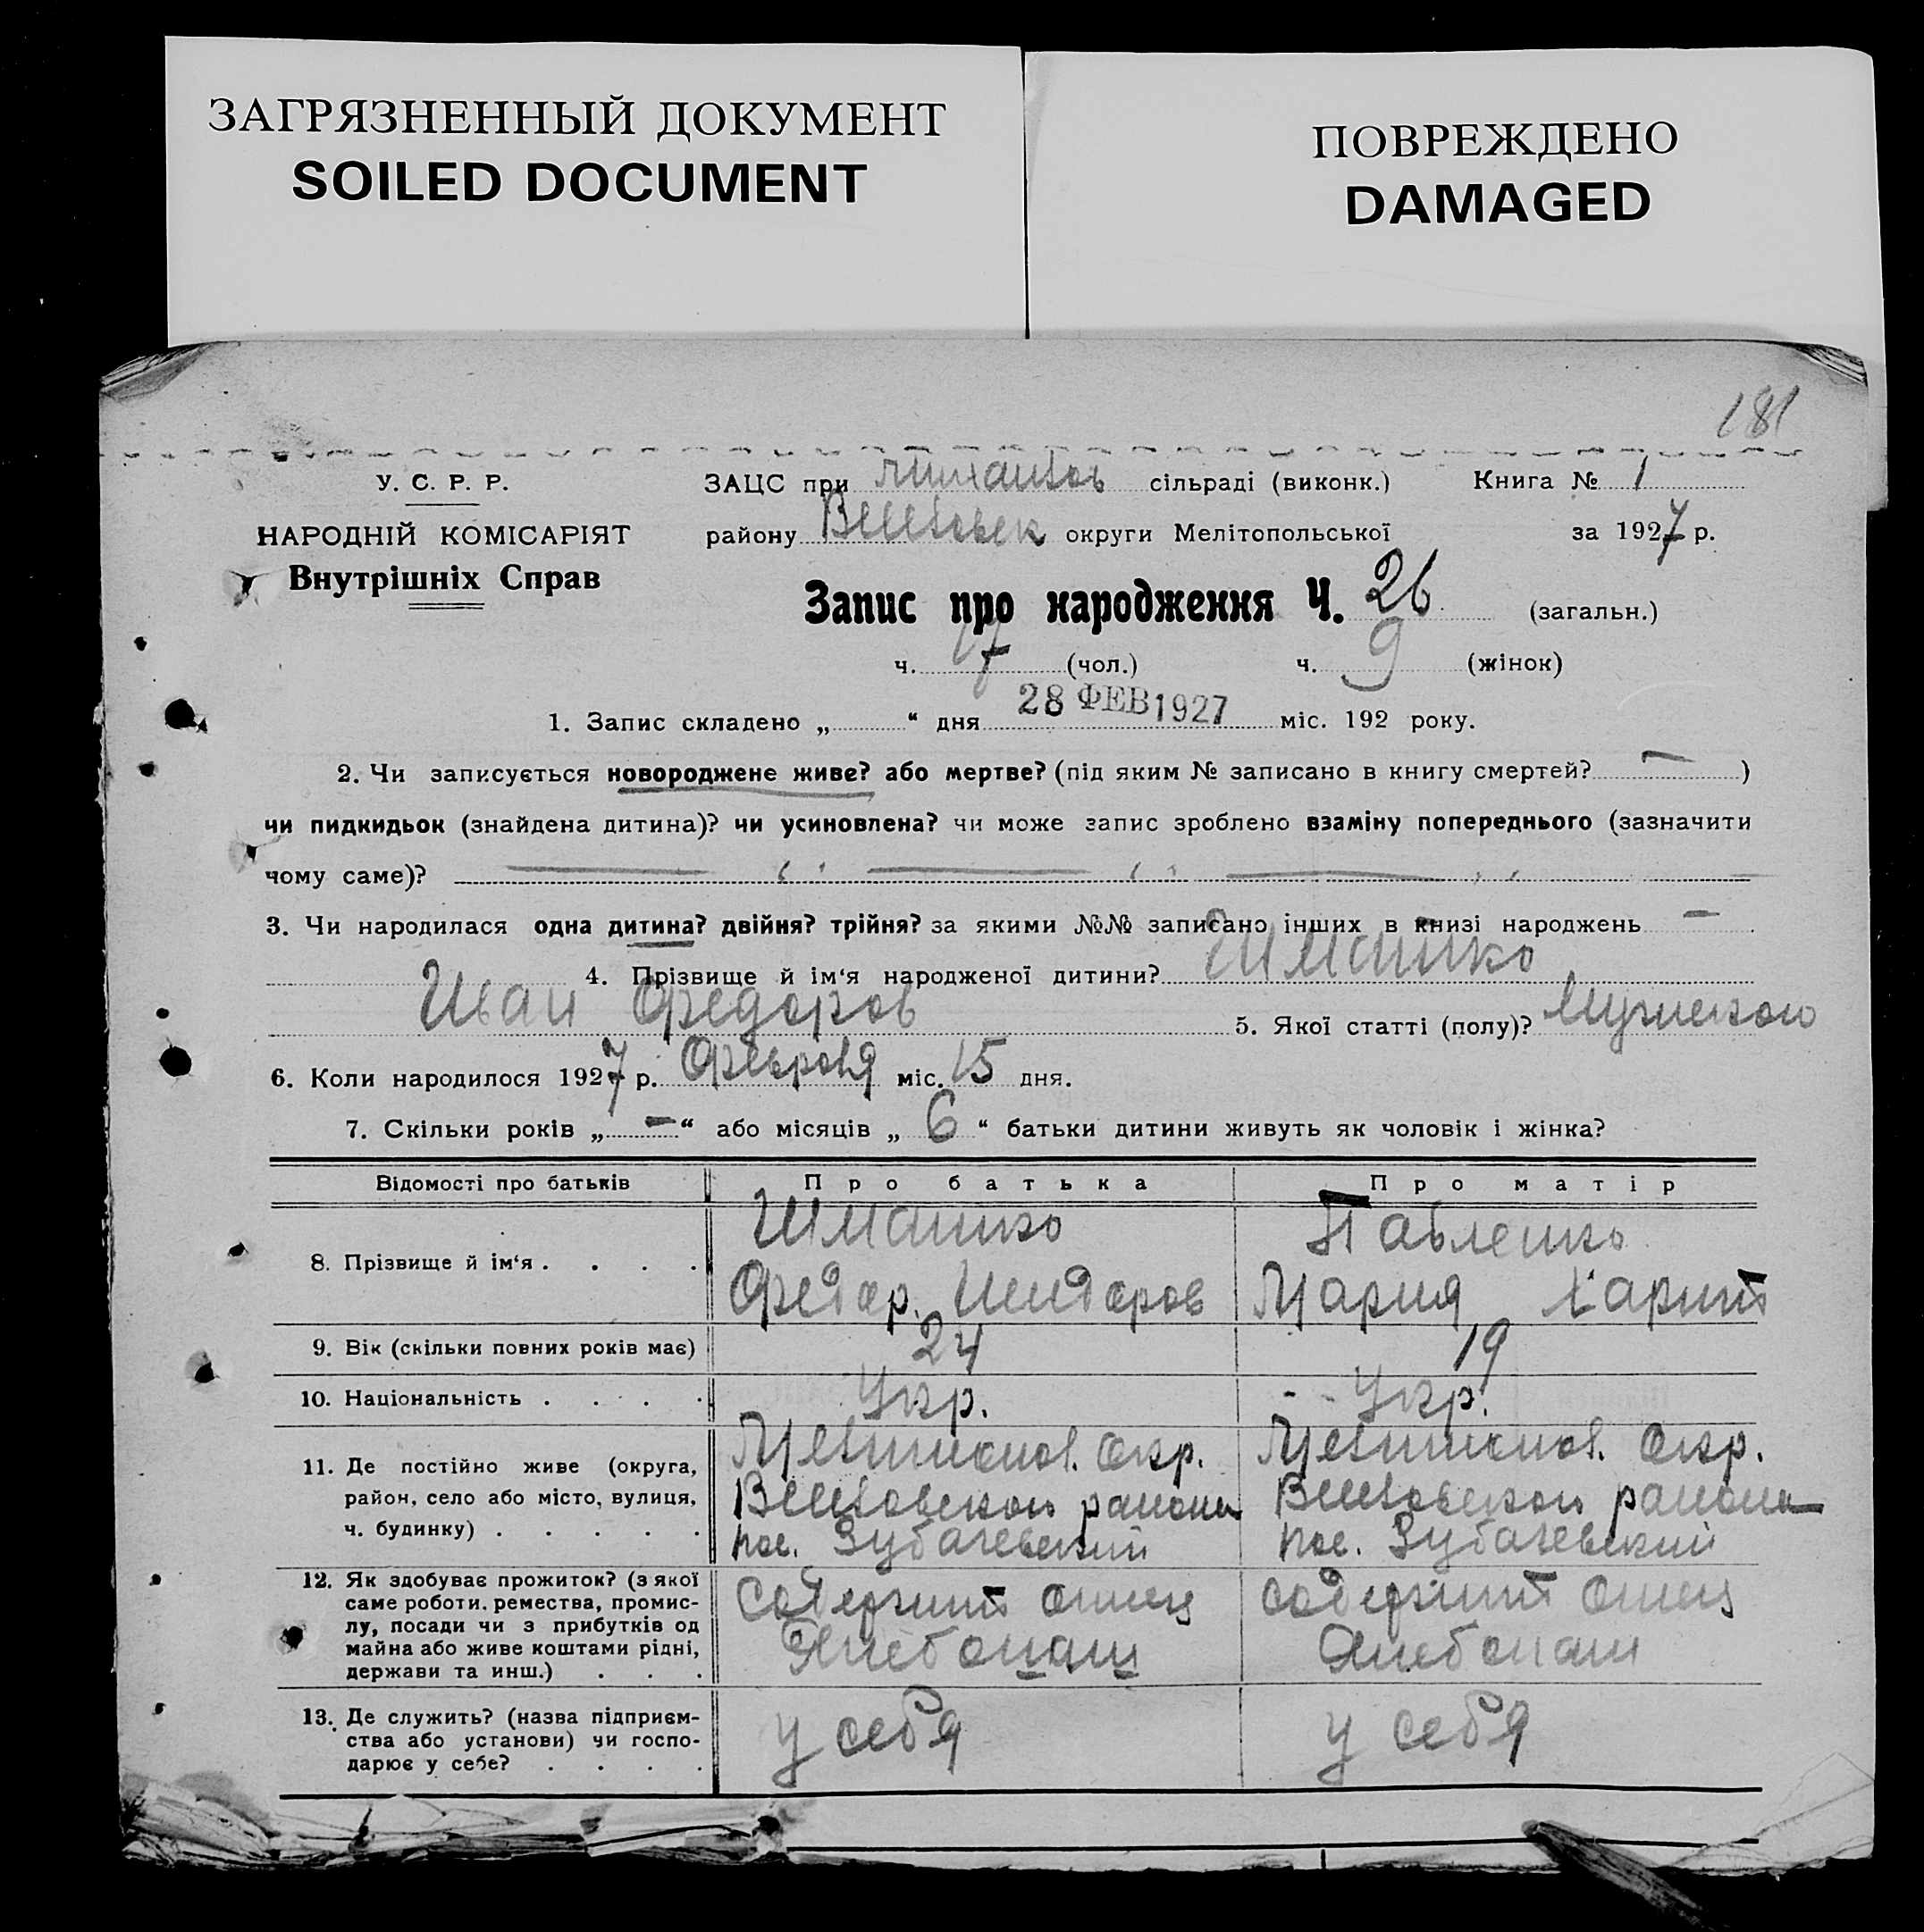 ЗАГРЯЗНЕННЫЙ ДОКУМЕНТ
SOILED DOCUMENT
ПОВРЕЖДЕНО
DAMAGED
181
У. С. Р. Р.
НАРОДНІЙ КОМІСАРІЯТ
Внутрішніх Справ
ЗАЦС при сільраді (виконк.) Книга № 1
району округи Мелітопольської за 1927 р.
Запис про народження Ч. 26 (загальн.)
ч. 17 (чол.) ч. 9 (жінок)
1. Запис складено „ “ дня 28 ФЕВ 1927 міс. 192 року.
2. Чи записується новороджене живе? або мертве? (під яким № записано в книгу смертей? — )
чи пидкидьок (знайдена дитина)? чи усиновлена? чи може запис зроблено взаміну попереднього (зазначити
чому саме)? — „ — „ — „
3. Чи народилася одна дитина? двійня? трійня? за якими №№ записано інших в книзі народжень —
4. Прізвище й ім‘я народженої дитини? Шмашко
Иван Федоров 5. Якої статті (полу)? Мужского
6. Коли народилося 1927 р. Февраля міс. 15 дня.
7. Скільки років „ — “ або місяців „ 6 “ батьки дитини живуть як чоловік і жінка?
Відомості про батьків Про батька Про матір
8. Прізвище й ім‘я . . . . Шмашко Павленко
Федор. Мария Харит
9. Вік (скільки повних років має) 24 19
10. Національність . . . . Укр. Укр.
11. Де постійно живе (округа, район, село або місто, вулиця, ч. будинку) . . . . .
Мелитопол. окр. Мелитопол. окр.
района района
пос. Зубачевский пос. Зубачевский
12. Як здобуває прожиток? (з якої саме роботи, ремества, промислу, посади чи з прибутків од майна або живе коштами рідні, держави та инш.) . . .
Содержит отец содержит отец
Хлебопаш Хлебопаш
13. Де служить? (назва підприємства або установи) чи господарює у себе? . . . .
у себя у себя